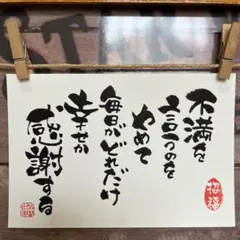 不満を
言うのを
やめて
毎日がどれだけ
幸せか
感謝する
招福